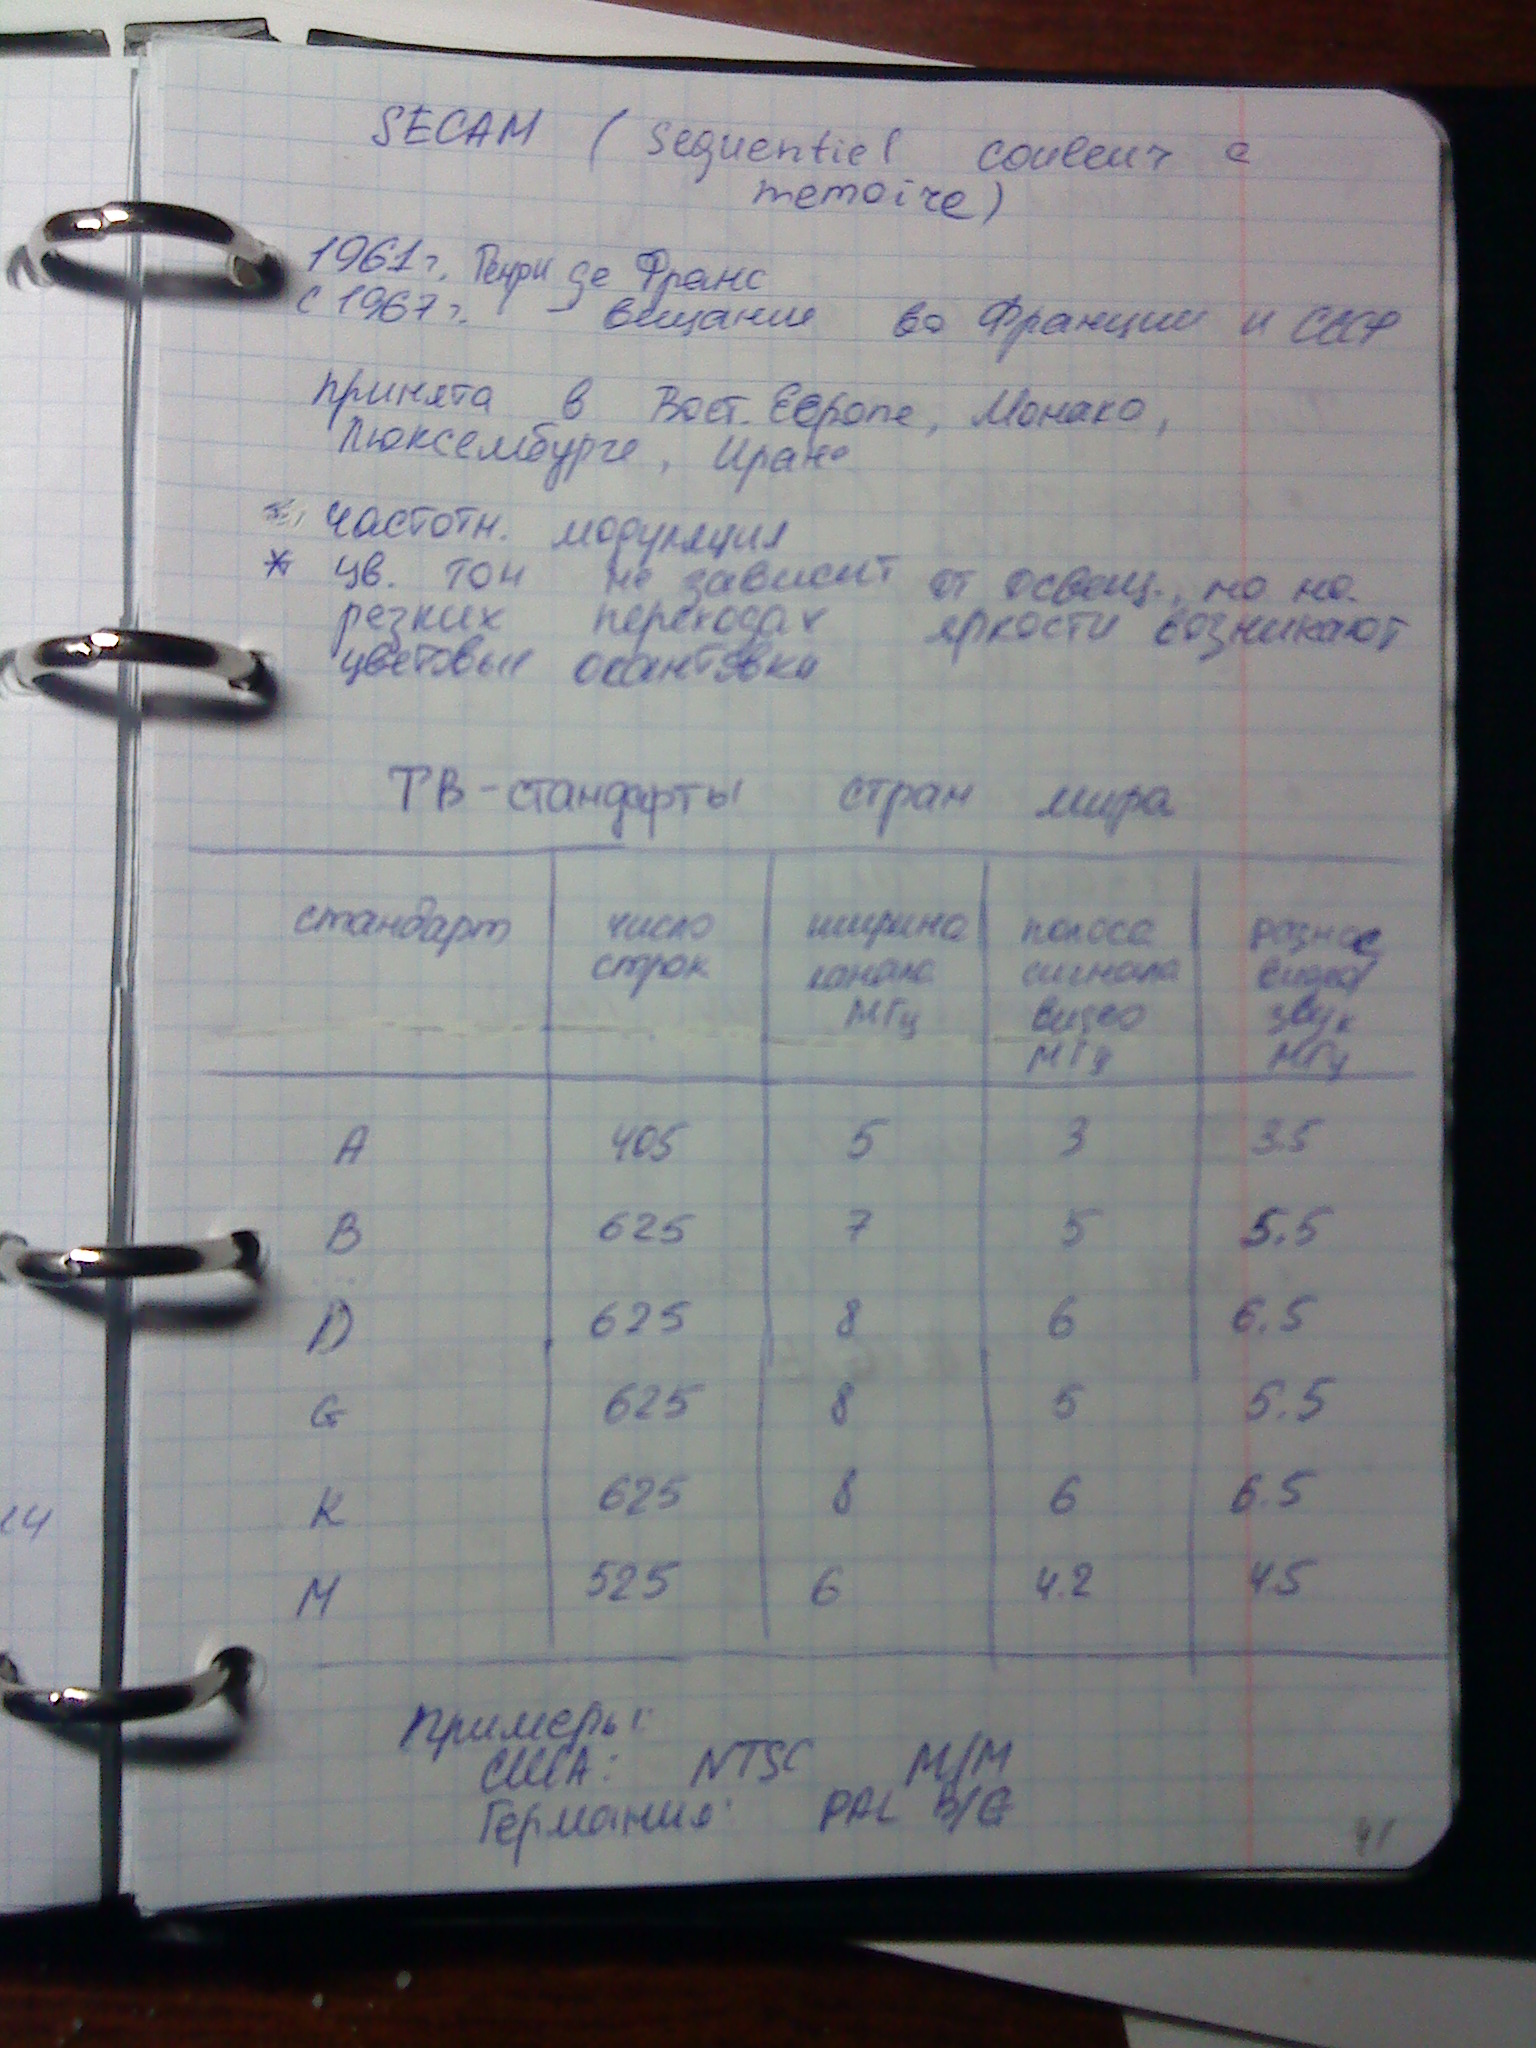 SECAM (sequentiel couleur a
memoire)
1961г. Генри де Франс
с 1967г. - вещание во Франции и СССР
принята в Вост. Европе, Монако,
Люксембурге, Иране
частотн. модуляция
* цв. тон не зависит от освещ., но на
резких переходах яркости возникают
цветовые окантовки
ТВ-стандарты стран мира
стандарт число строк ширина канала МГц полоса сигнала видео МГц разнос видео/звук МГц
A 405 5 3 3.5
B 625 7 5 5.5
D 625 8 6 6.5
G 625 8 5 5.5
K 625 8 6 6.5
M 525 6 4.2 4.5
Примеры:
США: NTSC M/M
Германия: PAL B/G
41